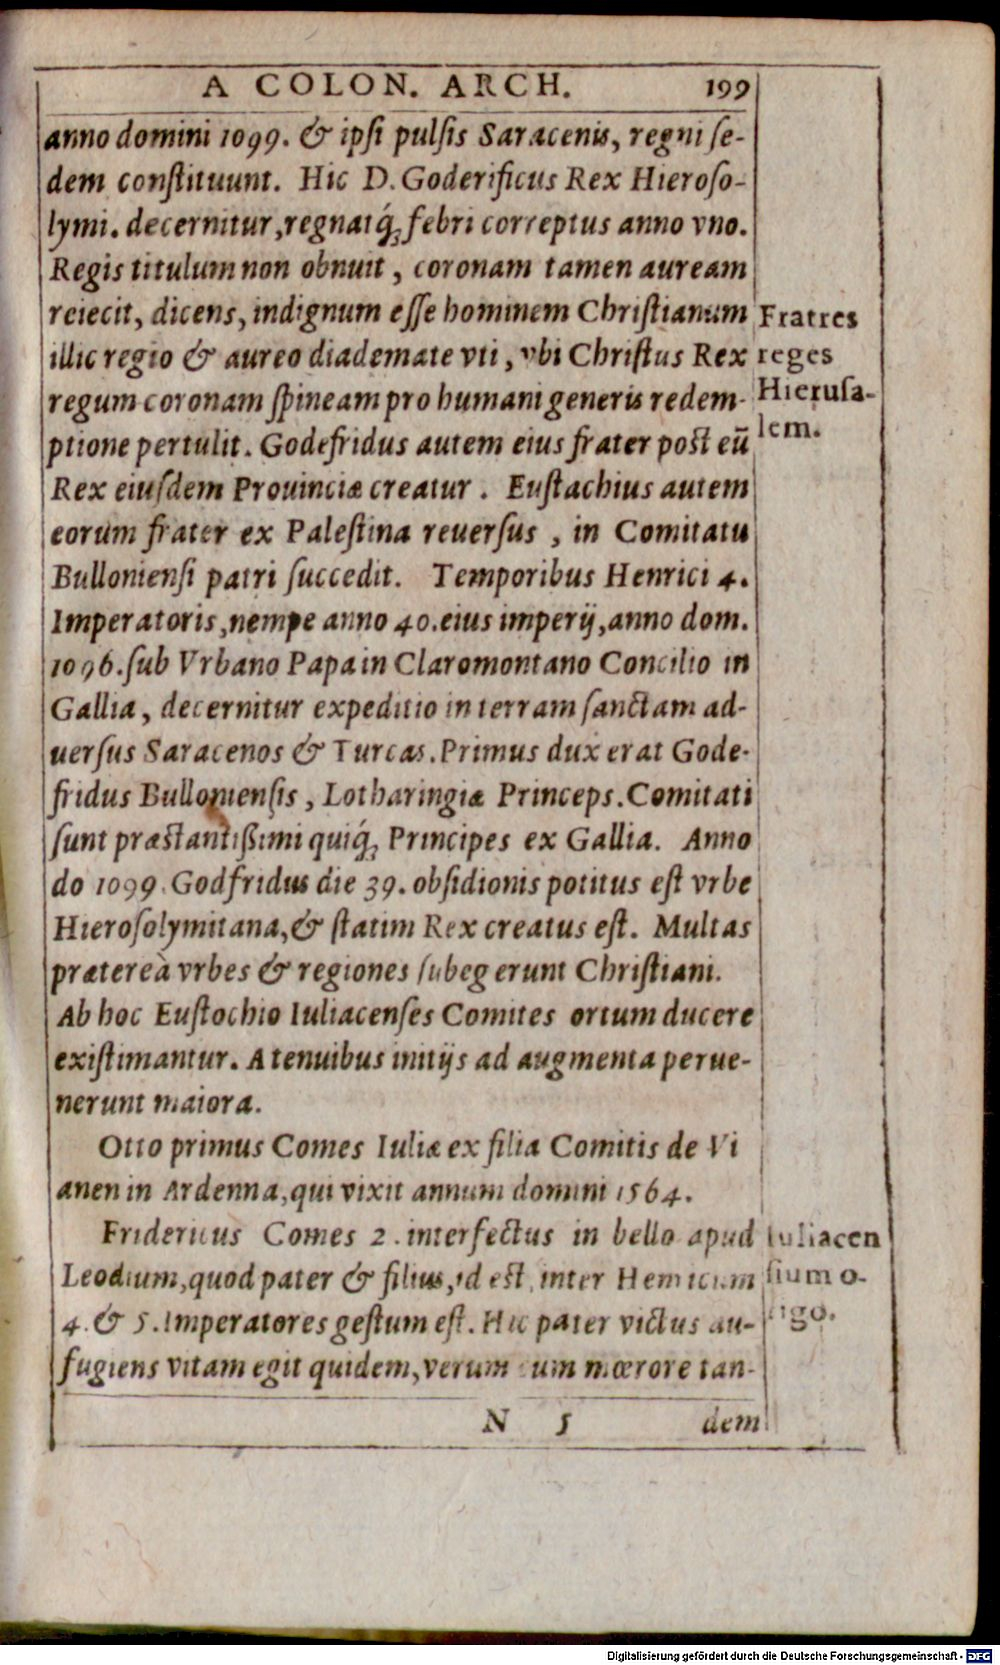 A COLON. ARCH. 199
anno domini 1099. & ipſi pulſis Saracenis, regni ſe-
dem conſtituunt. Hic D. Goderificus Rex Hieroſo-
lymi. decernitur, regnatq́; febri correptus anno vno.
Regis titulum non obnuit, coronam tamen auream
reiecit, dicens, indignum eſſe hominem Chriſtianum
illic regio & aureo diademate vti, vbi Chriſtus Rex
regum coronam ſpineam pro humani generis redem-
ptione pertulit. Godefridus autem eius frater poſt eū
Rex eiuſdem Prouinciæ creatur. Euſtachius autem
eorum frater ex Paleſtina reuerſus, in Comitatu
Bullonienſi patri ſuccedit. Temporibus Henrici 4.
Imperatoris, nempe anno 40. eius imperij, anno dom.
1096. ſub Vrbano Papa in Claromontano Concilio in
Gallia, decernitur expeditio in terram ſanctam ad-
uerſus Saracenos & Turcas. Primus dux erat Gode-
fridus Bullonienſis, Lotharingiæ Princeps. Comitati
ſunt præſtantißimi quiq́; Principes ex Gallia. Anno
do 1099. Godfridus die 39. obſidionis potitus eſt vrbe
Hieroſolymitana, & ſtatim Rex creatus eſt. Multas
prætereà vrbes & regiones ſubegerunt Chriſtiani.
Ab hoc Euſtochio Iuliacenſes Comites ortum ducere
exiſtimantur. A tenuibus initijs ad augmenta perue-
nerunt maiora.
Otto primus Comes Iuliæ ex filia Comitis de Vi
anen in Ardenna, qui vixit annum domini 1564.
Fridericus Comes 2. interfectus in bello apud
Leodium, quod pater & filius, id eſt, inter Henricum
4. & 5. Imperatores geſtum eſt. Hic pater victus au-
fugiens vitam egit quidem, verum cum mœrore tan-
N 5 dem
Fratres
reges
Hieruſa-
lem.
Iuliacen
ſium o-
rigo.
Digitalisierung gefördert durch die Deutsche Forschungsgemeinschaft - DFG